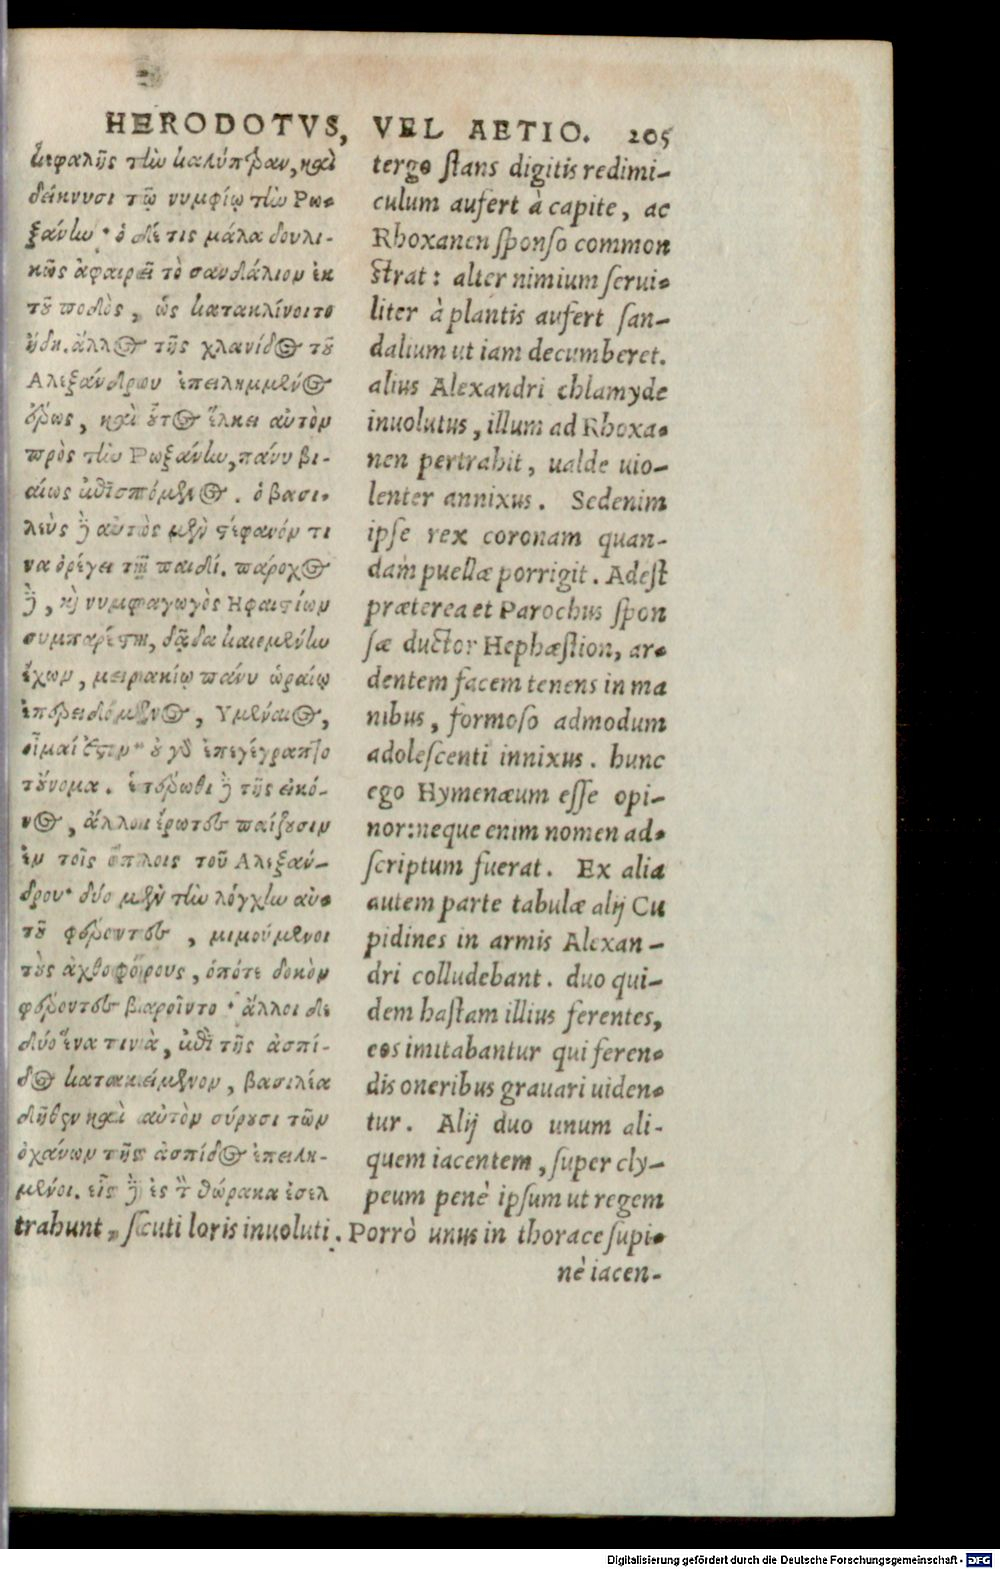 HERODOTVS, VEL AETIO. 205
κεφαλῆς τὴν καλύπτραν, καὶ
δείκνυσι τῷ νυμφίῳ τὴν Ρω-
ξάνην· ὁ δέ τις μάλα δουλι-
κῶς ἀφαιρεῖ τὸ σανδάλιον ἐκ
τοῦ ποδὸς, ὡς κατακλίνοιτο
ἤδη. ἄλλος τῆς χλανίδος τοῦ
Αλεξάνδρου ἐπειλημμένος
ἔρως, καὶ οὗτος ἕλκει αὐτὸν
πρὸς τὴν Ρωξάνην, πάνυ βι-
αίως ἐπισπόμενος. ὁ βασι-
λεὺς δὲ αὐτὸς μὲν στέφανόν τι
να ὀρέγει τῇ παιδί. πάροχος
δὲ, καὶ νυμφαγωγὸς Ηφαιστίων
συμπαρέστη, δᾷδα καιεμένην
ἔχων, μειρακίῳ πάνυ ὡραίῳ
ἐπερειδόμενος, Υμέναιος,
οἶμαί ἐστιν· οὐ γὰρ ἐπεγέγραπτο
τοὔνομα. ἑτέρωθι δὲ τῆς εἰκό-
νος, ἄλλοι ἔρωτες παίζουσιν
ἐν τοῖς ὅπλοις τοῦ Αλεξάν-
δρου· δύο μὲν τὴν λόγχην αὐ-
τοῦ φέροντες, μιμούμενοι
τοὺς ἀχθοφόρους, ὁπότε δοκὸν
φέροντες βαροῖντο· ἄλλοι δὲ
δύο ἕνα τινὰ, ἐπὶ τῆς ἀσπί-
δος κατακείμενον, βασιλέα
δῆθεν καὶ αὐτὸν σύρουσι τῶν
ὀχάνων τῆς ἀσπίδος ἐπειλη-
μένοι. εἷς δὲ ἐς τὸν θώρακα ἐσελ
tergo stans digitis redimi-
culum aufert à capite, ac
Rhoxanen sponso common
strat: alter nimium serui-
liter à plantis aufert san-
dalium ut iam decumberet.
alius Alexandri chlamyde
inuolutus, illum ad Rhoxa-
nen pertrahit, ualde uio-
lenter annixus. Sedenim
ipse rex coronam quan-
dam puellæ porrigit. Adest
præterea et Parochus spon
sæ ductor Hephæstion, ar-
dentem facem tenens in ma
nibus, formoso admodum
adolescenti innixus. hunc
ego Hymenæum esse opi-
nor: neque enim nomen ad-
scriptum fuerat. Ex alia
autem parte tabulæ alij Cu
pidines in armis Alexan-
dri colludebant. duo qui-
dem hastam illius ferentes,
eos imitabantur qui feren-
dis oneribus grauari uiden-
tur. Alij duo unum ali-
quem iacentem, super cly-
peum penè ipsum ut regem
trahunt, scuti loris inuoluti. Porrò unus in thorace supi-
nè iacen-
Digitalisierung gefördert durch die Deutsche Forschungsgemeinschaft - DFG